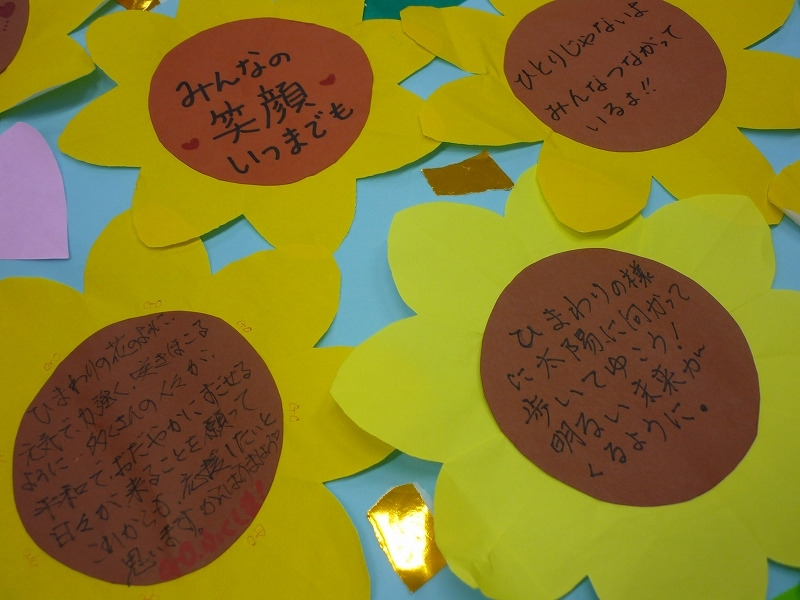 みんなの
笑顔
いつまでも
ひとりじゃないよ
みんなつながって
いるよ!!
ひまわりの様
に太陽に向かって
歩いてゆこう!
明るい未来が
くるように。
ひまわりの花のように…
元気で、力強く咲きほこる
ように 多くさんの人々が、
平和で、おだやかにすごせる
日々が、来ることを願って
これからも応援したいと
思います。がんばりましょう